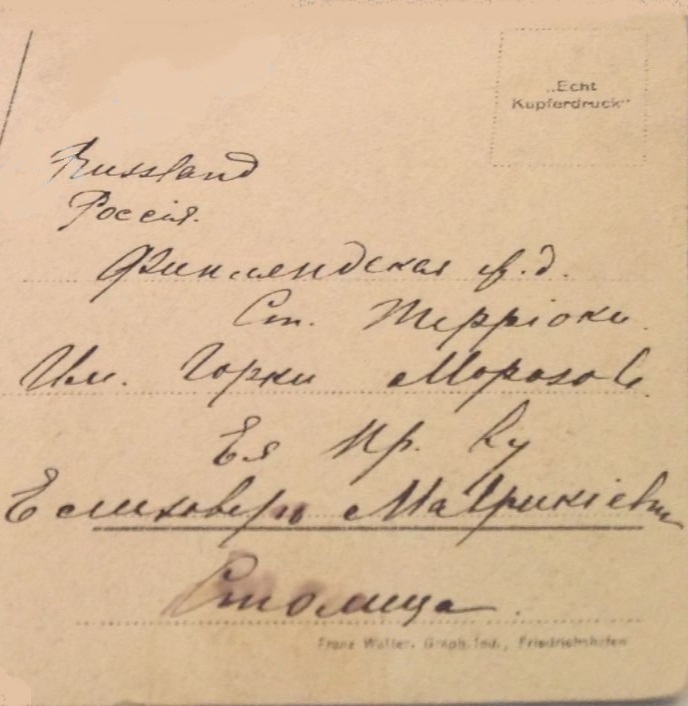 „Echt
Kupferdruck“
Russland
Россія.
Финляндская ж.д.
Ст. Терріоки.
Им. Горки Морозов.
Ея Пр. Ву
Матрикіевн
Столица.
Franz Walter, Graph. Ind., Friedrichshafen